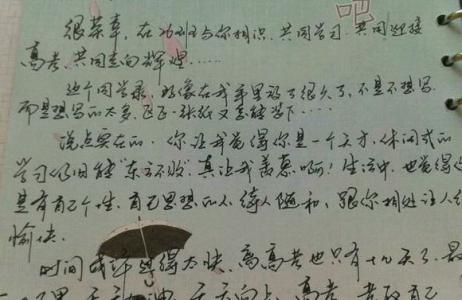 吧
很荣幸，在功班与你相识、共同学习、共同迎接
高考、共同走向辉煌……
这个同学录，好像在我手里放了很久了，不是不想写，
而是想写的太多，区区一张纸又怎能写下……
说点实在的，你让我觉得你是一个天才，休闲式的
学习仍旧能“东方不败”，真让我羡慕啊！生活中，也觉得
是有自己个性、自己思想的人，待人随和，跟你相处让人
愉快。
时间或许过得太快，离高考也只有十几天了，最
天天向上，高考，考取自己